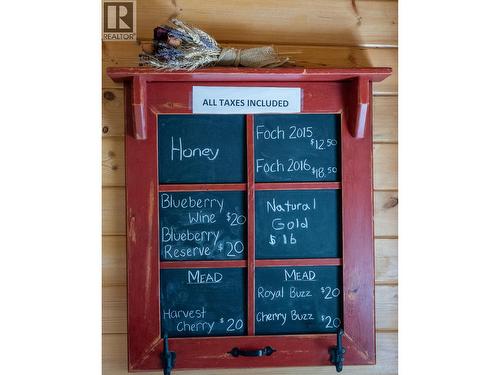 REALTOR
ALL TAXES INCLUDED
Honey
Foch 2015
$12.50
Foch 2016
$18.50
Blueberry
Wine $20
Blueberry
Reserve $20
Natural
Gold
$16
MEAD
Harvest
Cherry $20
MEAD
Royal Buzz $20
Cherry Buzz $20